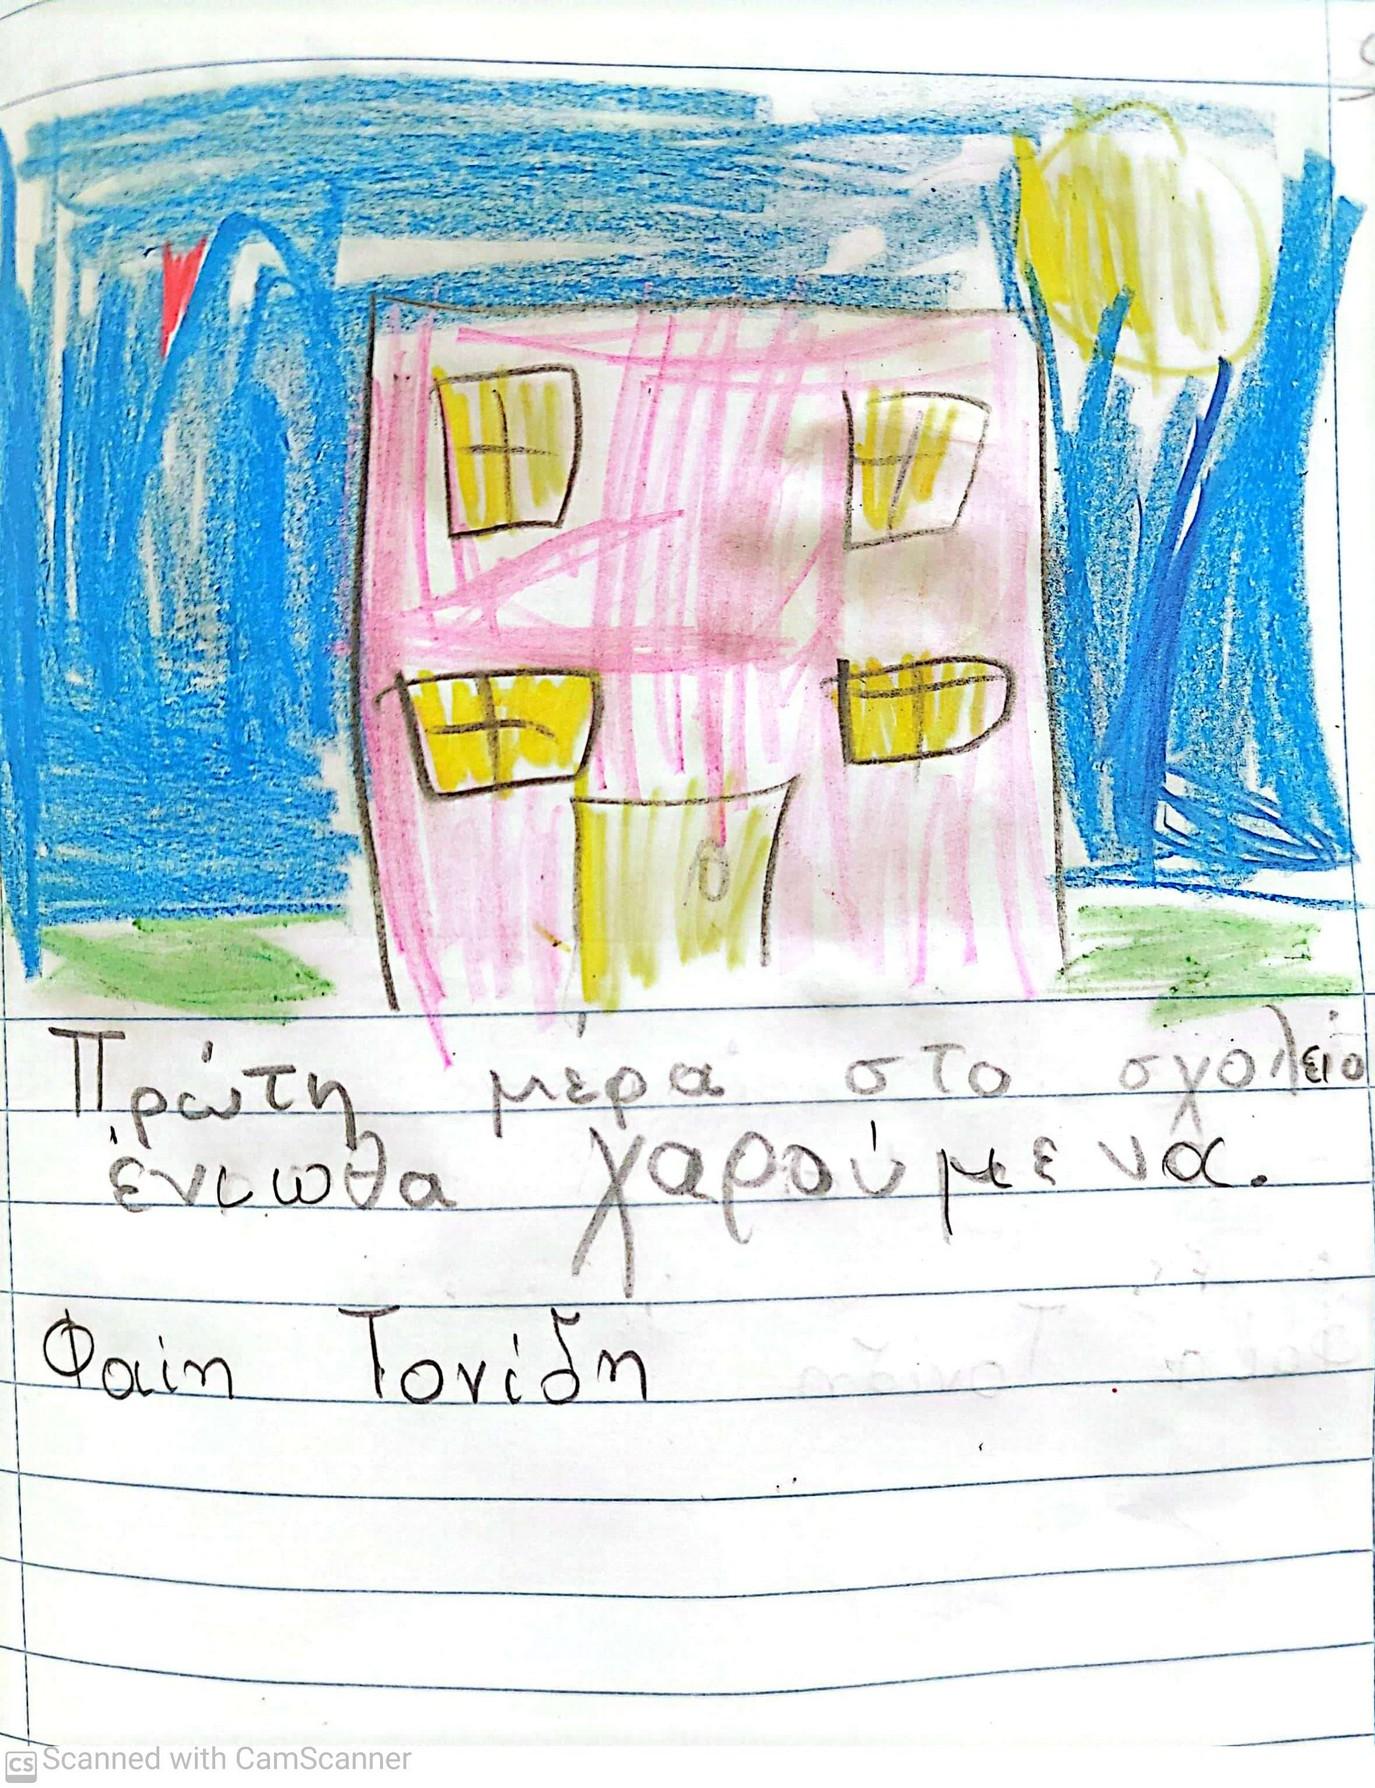 Πρώτη μέρα στο σχολείο
ένιωθα χαρούμενα.
Φαίη Τονίδη
CS Scanned with CamScanner